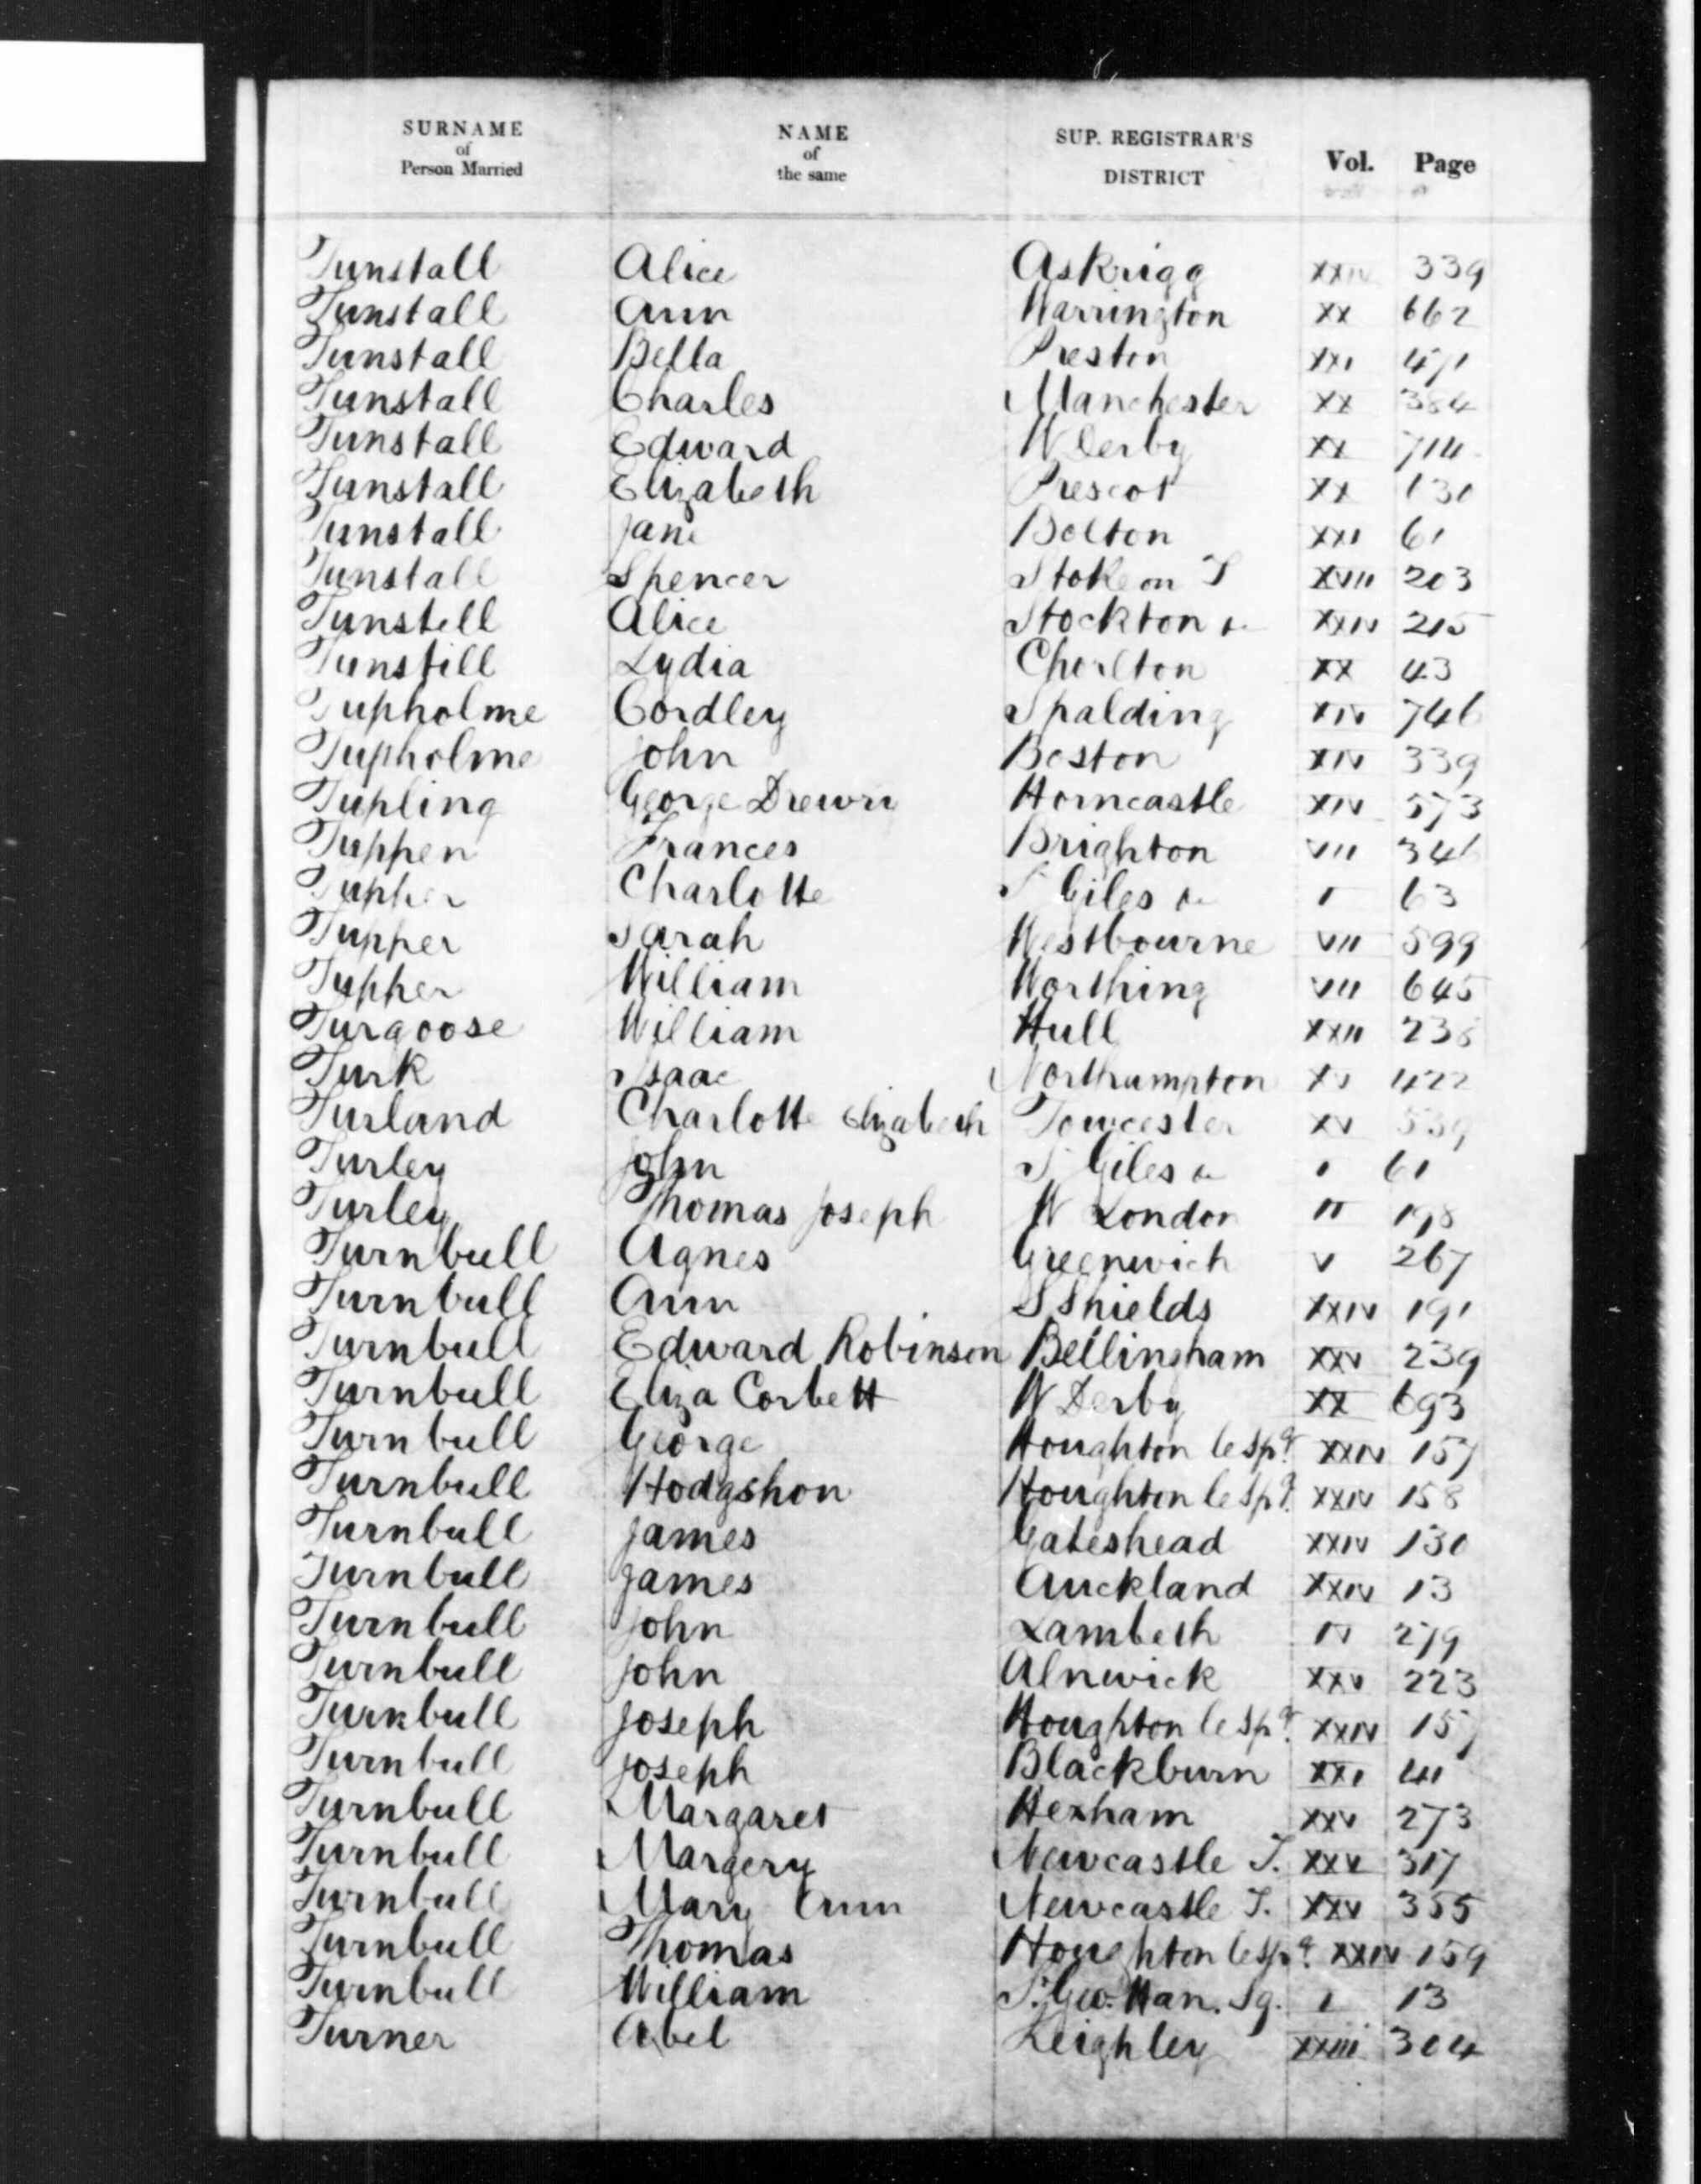 SURNAME of Person Married NAME of the same SUP. REGISTRAR'S DISTRICT Vol. Page
Tunstall Alice Askrigg XXIV 339
Tunstall Ann Warrington XX 662
Tunstall Bella Preston XXI 471
Tunstall Charles Manchester XX 384
Tunstall Edward W Derby XX 714
Tunstall Elizabeth Prescot XX 630
Tunstall Jane Bolton XXI 61
Tunstall Spencer Stoke on T XVII 203
Tunstell Alice Stockton &c XXIV 215
Tunstill Lydia Chorlton XX 43
Tupholme Cordley Spalding XIV 746
Tupholme John Boston XIV 339
Tupling George Drewri Horncastle XIV 573
Tuppen Frances Brighton VII 346
Tupper Charlotte St Giles &c I 63
Tupper Sarah Westbourne VII 599
Tupper William Worthing VII 645
Turgoose William Hull XXII 238
Turk Isaac Northampton XV 422
Turland Charlotte Elizabeth Towcester XV 539
Turley John St Giles &c I 61
Turley Thomas Joseph W London II 198
Turnbull Agnes Greenwich V 267
Turnbull Ann S Shields XXIV 191
Turnbull Edward Robinson Bellingham XXV 239
Turnbull Eliza Corbett W Derby XX 693
Turnbull George Houghton le Spg. XXIV 157
Turnbull Hodgshon Houghton le Spg. XXIV 158
Turnbull James Gateshead XXIV 130
Turnbull James Auckland XXIV 13
Turnbull John Lambeth IV 279
Turnbull John Alnwick XXV 223
Turnbull Joseph Houghton le Spg. XXIV 157
Turnbull Joseph Blackburn XXI 41
Turnbull Margaret Hexham XXV 273
Turnbull Margery Newcastle T. XXV 317
Turnbull Mary Ann Newcastle T. XXV 355
Turnbull Thomas Houghton le Spg. XXIV 159
Turnbull William St. Geo. Han. Sq. I 13
Turner Abel Keighley XXIII 304